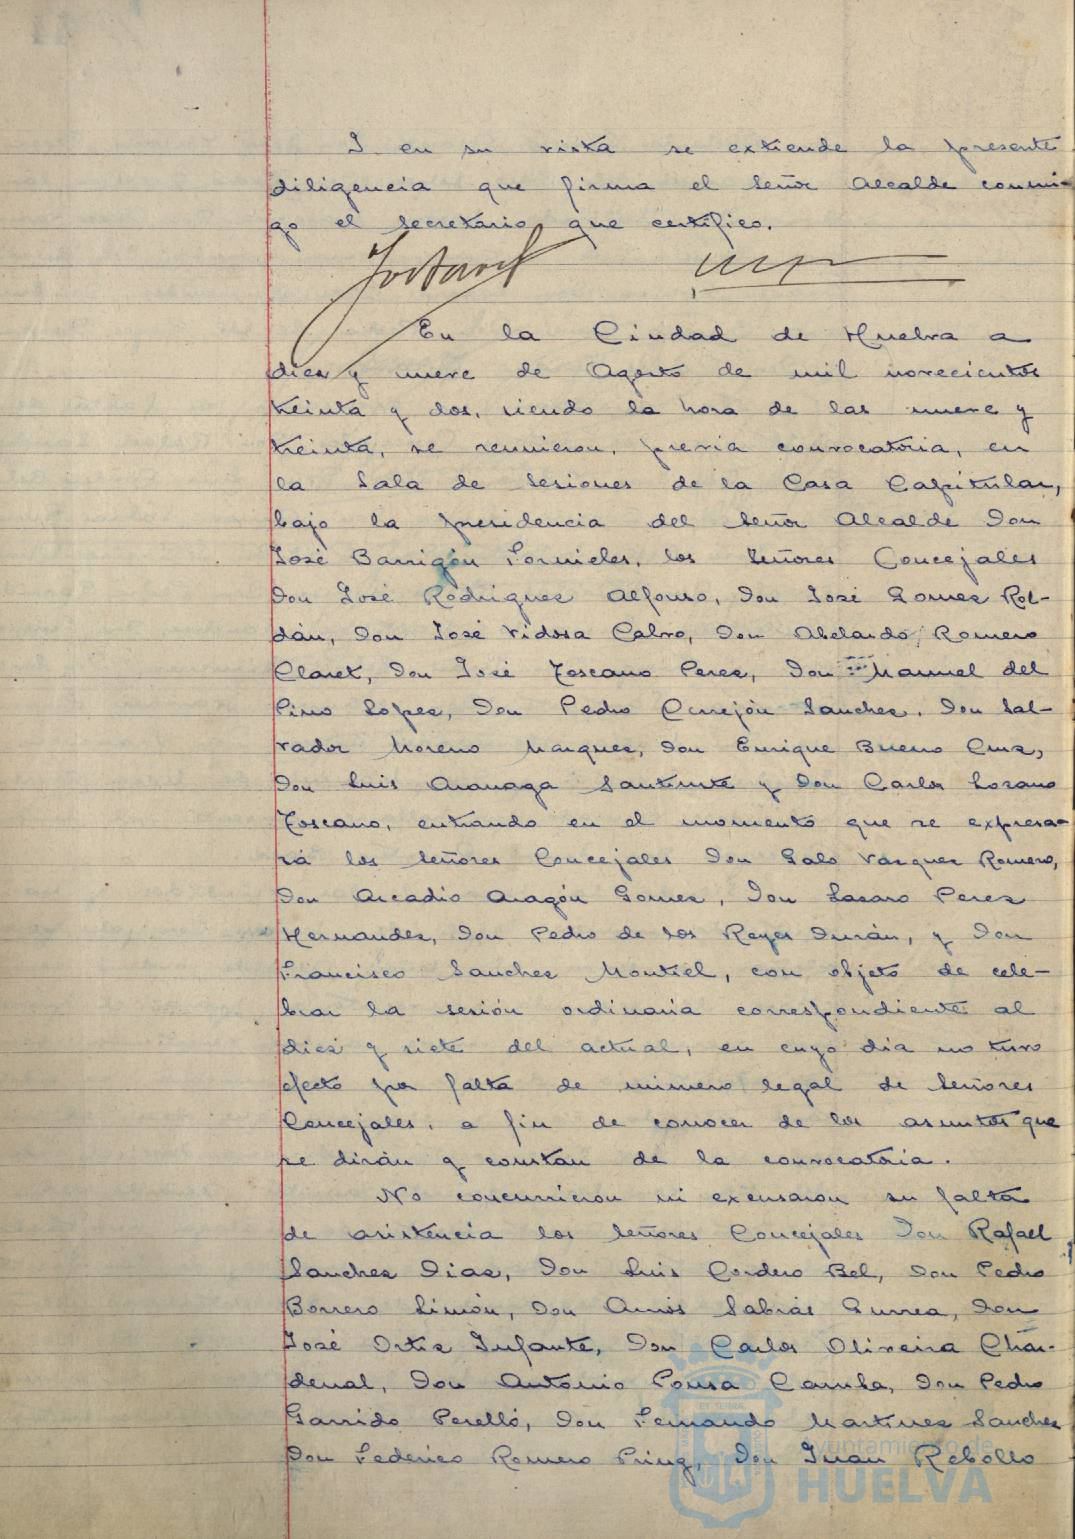 Y en su vista se extiende la presente
diligencia que firma el Señor Alcalde conmi-
go el Secretario, que certifico.
En la Ciudad de Huelva a
diez y nueve de Agosto de mil novecientos
treinta y dos, siendo la hora de las nueve y
treinta, se reunieron, previa convocatoria, en
la Sala de Sesiones de la Casa Capitular,
bajo la presidencia del Señor Alcalde Don
José Barrigón Fornieles, los Señores Concejales
Don José Rodriguez Alfonso, Don José Gomez Rol-
dán, Don José Vidosa Calvo, Don Abelardo Romero
Claret, Don José Toscano Perez, Don Manuel del
Pino Lopez, Don Pedro Cerrejón Sanchez, Don Sal-
vador Moreno Marquez, Don Enrique Bueno Cruz,
Don Luis Aranaga Santurte y Don Carlos Lozano
Toscano, entrando en el momento que se expresa-
rá los Señores Concejales Don Galo Vazquez Romero,
Don Arcadio Aragón Gomez, Don Lazaro Perez
Hernandez, Don Pedro de los Reyes Durán, y Don
Francisco Sanchez Montiel, con objeto de cele-
brar la sesión ordinaria correspondiente al
diez y siete del actual, en cuyo dia no tuvo
efecto por falta de número legal de Señores
Concejales, a fin de conocer de los asuntos que
se dirán y constan de la convocatoria.
No concurrieron ni excusaron su falta
de asistencia los Señores Concejales Don Rafael
Sanchez Diaz, Don Luis Cordero Bel, Don Pedro
Borrero Limón, Don Amós Sabrás Gurrea, Don
José Ortiz Infante, Don Carlos Oliveira Char-
denal, Don Antonio Pousa Camba, Don Pedro
Garrido Perelló, Don Fernando Martinez Sanchez
Don Federico Romero Pring, Don Juan Rebollo
Ayuntamiento de
HUELVA